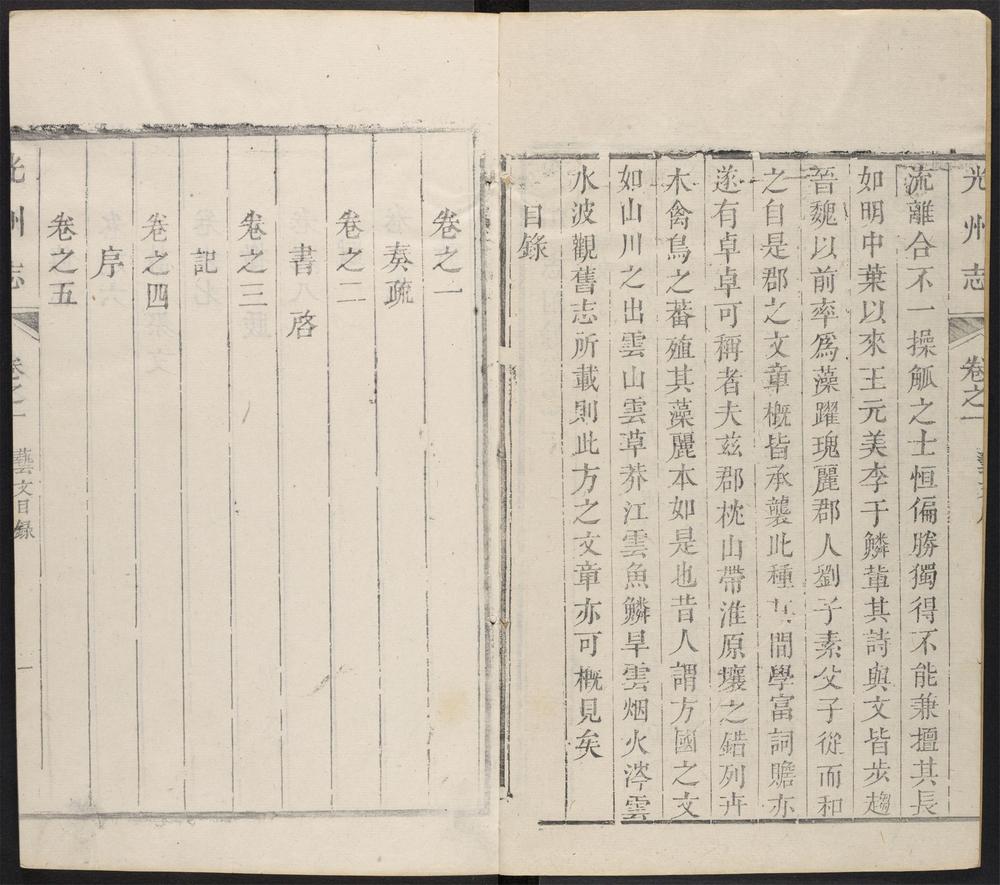 光州志 卷之一
流離合不一操觚之士恒偏勝獨得不能兼擅其長
如明中葉以來王元美李于鱗輩其詩與文皆步趨
晉魏以前率爲藻躍瑰麗郡人劉子素父子從而和
之自是郡之文章概皆承襲此種間學富詞贍亦
遂有卓卓可稱者夫兹郡枕山帶淮原壤之錯列卉
木禽鳥之蕃殖其藻麗本如是也昔人謂方國之文
如山川之出雲山雲草莽江雲魚鱗旱雲烟火涔雲
水波觀舊志所載則此方之文章亦可概見矣
目錄
卷之一
奏疏
卷之二
書 啓
卷之三
記
卷之四
序
卷之五
光州志 卷之一 藝文目錄 一